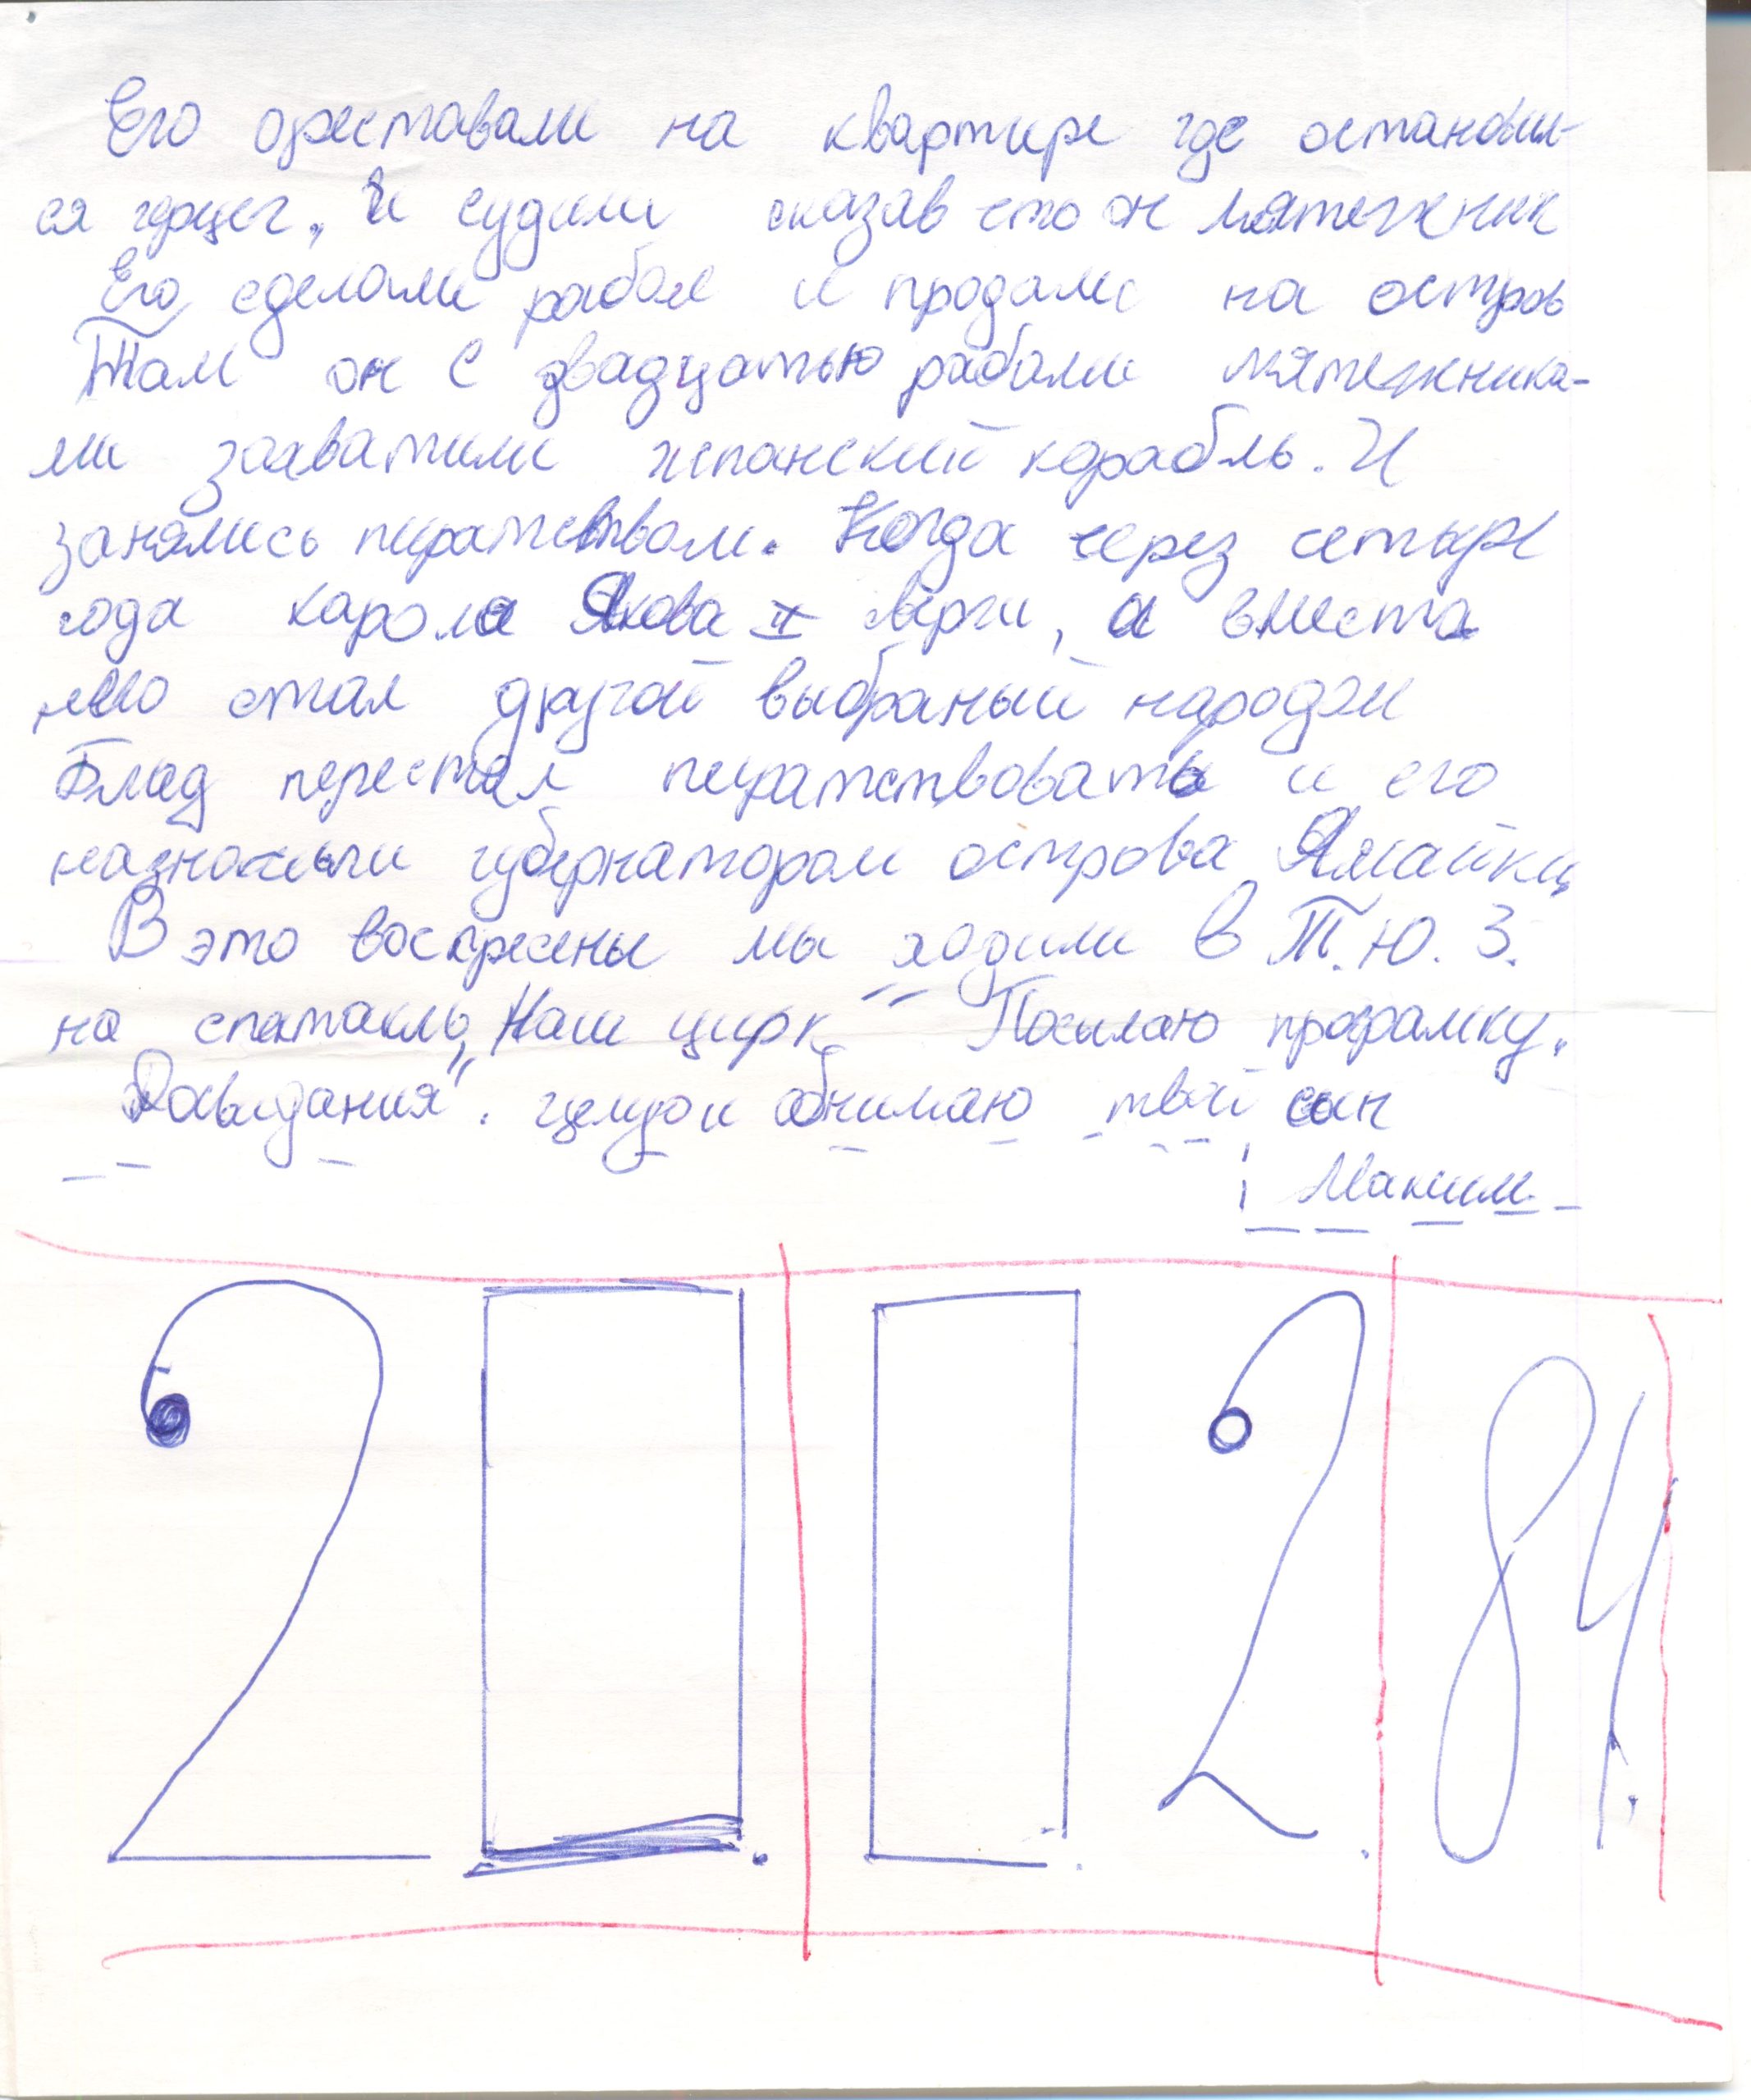 Его ореставали на квартире где останавил-
ся герцег. И судили сказав что он мятежник
Его сделали рабом и продали на остров
Там он с двадцатью рабами мятежника-
ми захватили испанский корабль. И
занялись пиратством. Когда через четыре
года кароля Якова II , а вместа
него стал другой выбраный народом
Блад перестал пиратствовать и его
назначили губернатором острова Ямайки
В это воскресены мы ходили в Т.Ю.З.
на спектакль „Наш цирк" Посылаю программку.
Досвидания". целую и обнимаю твой сын
Максим
20. 02. 84.